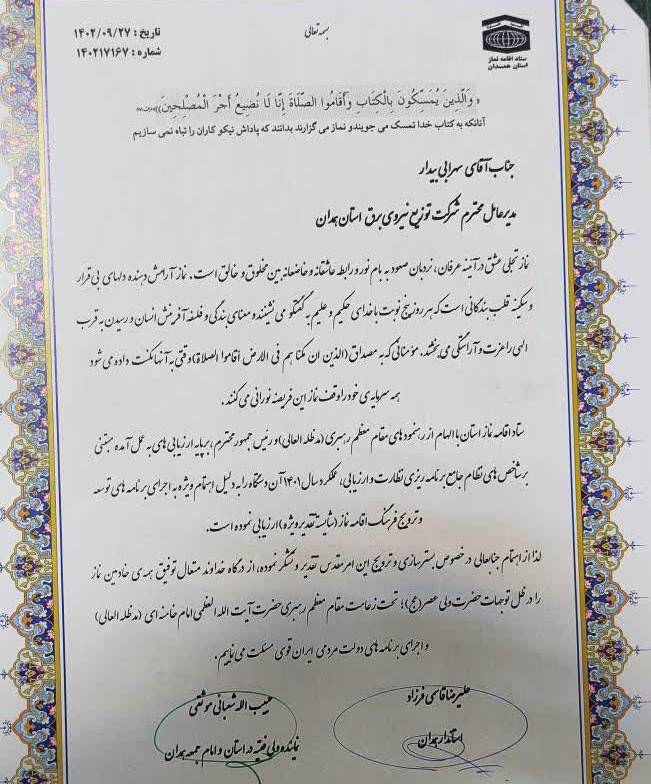 بسمه تعالی
تاریخ : ۱۴۰۲/۰۹/۲۷
شماره : ۱۴۰۲۱۷۱۶۷
ستاد اقامه نماز
استان همدان
« وَالَّذِينَ يُمَسِّكُونَ بِالْكِتَابِ وَأَقَامُوا الصَّلَاةَ إِنَّا لَا نُضِيعُ أَجْرَ الْمُصْلِحِينَ»
آنانکه به کتاب خدا تمسک می جویند و نماز می گزارند بدانند که پاداش نیکو کاران را تباه نمی سازیم
جناب آقای سهرابی بیدار
مدیرعامل محترم شرکت توزیع نیروی برق استان همدان
نماز تجلی عشق در آئینه عرفان، نردبان صعود به بام نور و رابطه عاشقانه و خاضعانه بین مخلوق و خالق است. نماز آرامش دهنده دلهای بی قرار
و سکینه قلب بندگانی است که هر روز پنج نوبت با خدای حکیم و علیم به گفتگو می نشینند و معنای بندگی و فلسفه آفرینش انسان و رسیدن به قرب
الهی را عزت و آراستگی می بخشد. مؤمنانی که به مصداق (الذین ان مکناهم فی الارض أقاموا الصلاة) وقتی به آنها مکنت داده می شود
همه سرمایه ی خود را وقف نماز این فریضه نورانی می کنند.
ستاد اقامه نماز استان با الهام از رهنمودهای مقام معظم رهبری (مدظله العالی) و رئیس جمهور محترم، بر پایه ارزیابی های به عمل آمده مبتنی
بر شاخص های نظام جامع برنامه ریزی نظارت و ارزیابی، عملکرد سال ۱۴۰۱ آن دستگاه را به دلیل اهتمام ویژه به اجرای برنامه های توسعه
و ترویج فرهنگ اقامه نماز (شایسته تقدیر ویژه) ارزیابی نموده است.
لذا از اهتمام جنابعالی در خصوص بسترسازی و ترویج این امر مقدس تقدیر و تشکر نموده، از درگاه خداوند متعال توفیق همه ی خادمین نماز
را در ظل توجهات حضرت ولی عصر (عج)؛ تحت زعامت مقام معظم رهبری حضرت آیت الله العظمی امام خامنه ای (مدظله العالی)
و اجرای برنامه های دولت مردمی ایران قوی مسئلت می نمایم.
علیرضا قاسمی فرزاد
استاندار همدان
حبیب الله شعبانی موثقی
نماینده ولی فقیه در استان و امام جمعه همدان